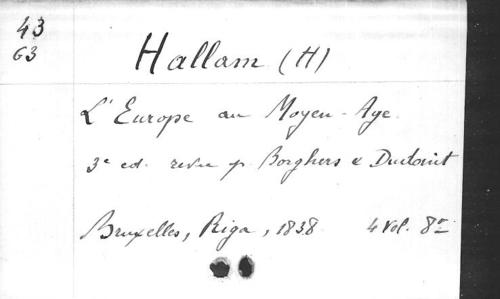 43
63
Hallam (H)
L'Europe au Moyen-Age.
3e ed. revue p. Borghers &
Bruxelles, Riga, 1838 4 vol. 8º